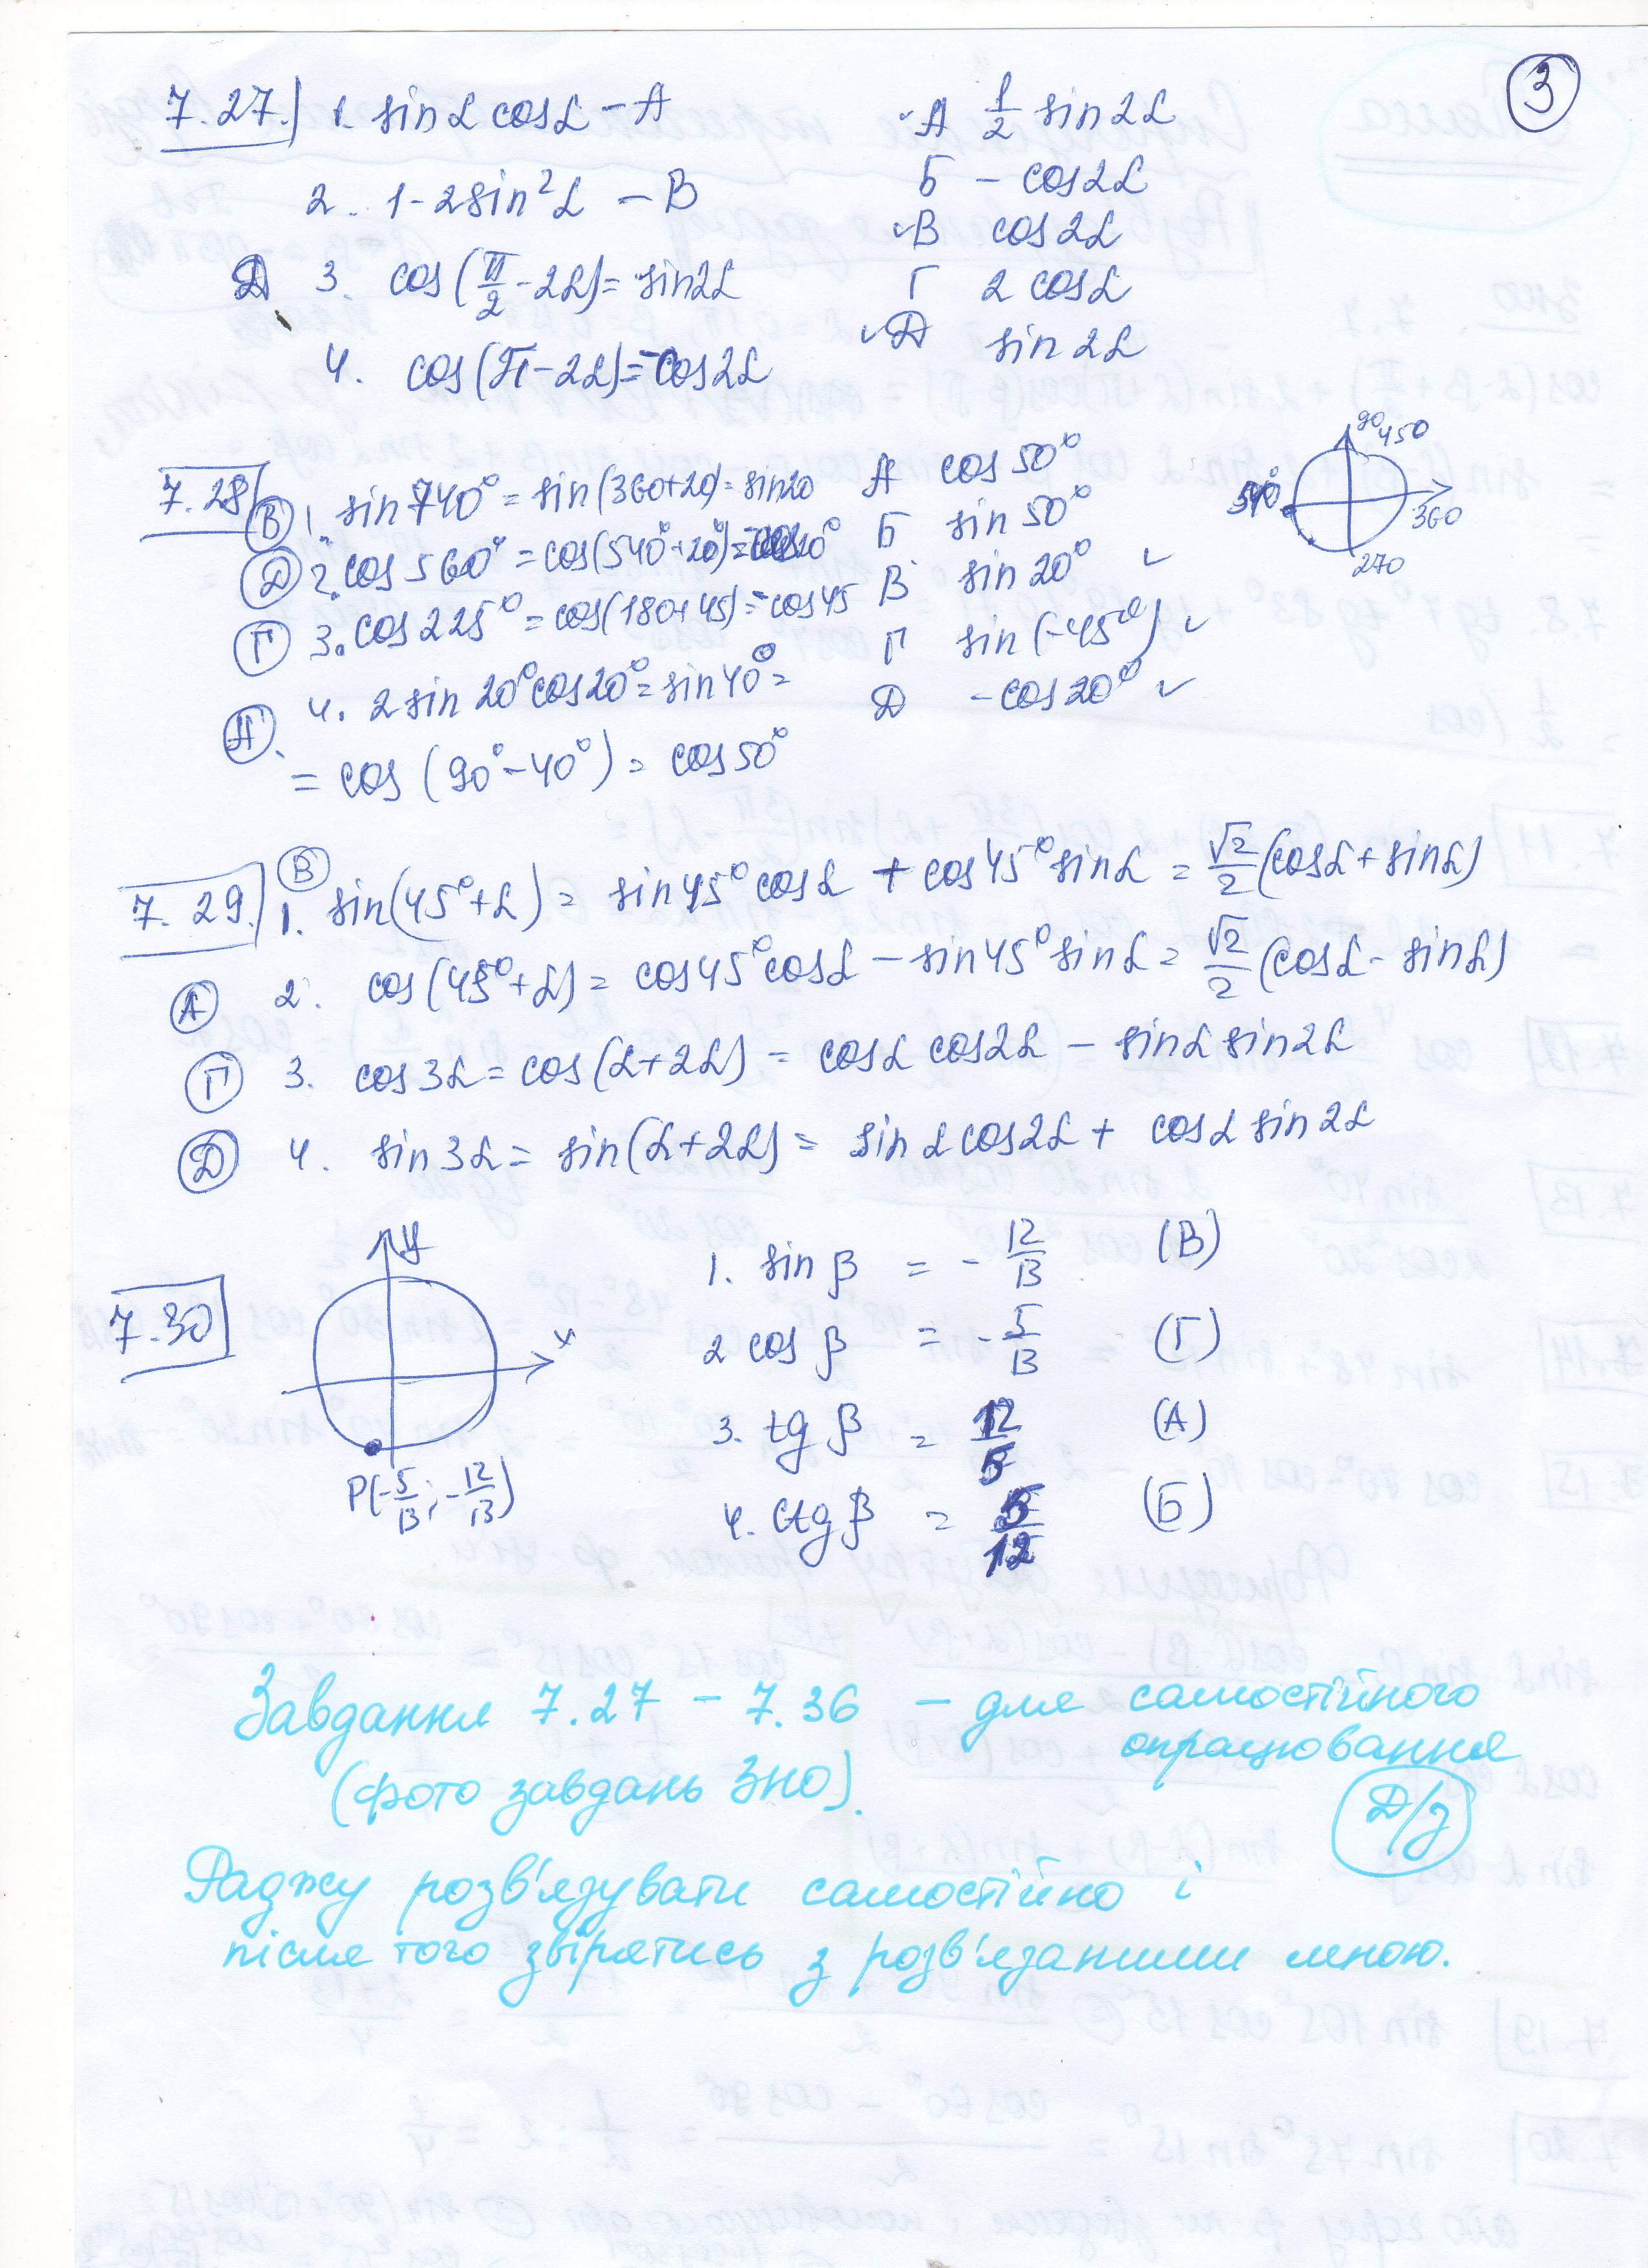 3
7.27. 1. sin α cos α – А
2. 1-2sin²α – В
Д 3. cos(π/2 - 2α) = sin2α
4. cos(π-2α) = -cos2α
А 1/2 sin 2α
Б - cos2α
В cos 2α
Г 2 cos α
Д sin 2α
7.28 В 1. sin 740° = sin(360+20) = sin20
Д 2. cos 560° = cos(540°+20°) = -cos20°
Г 3. cos 225° = cos(180+45) = -cos45
А 4. 2 sin 20° cos20° = sin40° =
= cos (90°-40°) = cos50°
А cos 50°
Б sin 50°
В sin 20°
Г sin (-45°)
Д -cos 20°
90 450
540°
360
270
7.29. В 1. sin(45°+α) = sin45° cos α + cos45° sin α = √2/2 (cos α + sin α)
А 2. cos(45°+α) = cos45° cos α – sin45° sin α = √2/2 (cos α - sin α)
Г 3. cos3α = cos(α+2α) = cos α cos2α – sin α sin2α
Д 4. sin3α = sin(α+2α) = sin α cos2α + cos α sin 2α
7.30
y
x
P(-5/13; -12/13)
1. sin β = -12/13 (В)
2 cos β = -5/13 (Г)
3. tg β = 12/5 (А)
4. ctg β = 5/12 (Б)
Завдання 7.27 – 7.36 – для самостійного
опрацювання
(фото завдань ЗНО).
Д/з
Раджу розв'язувати самостійно і
після того звірятись з розв'язаними мною.